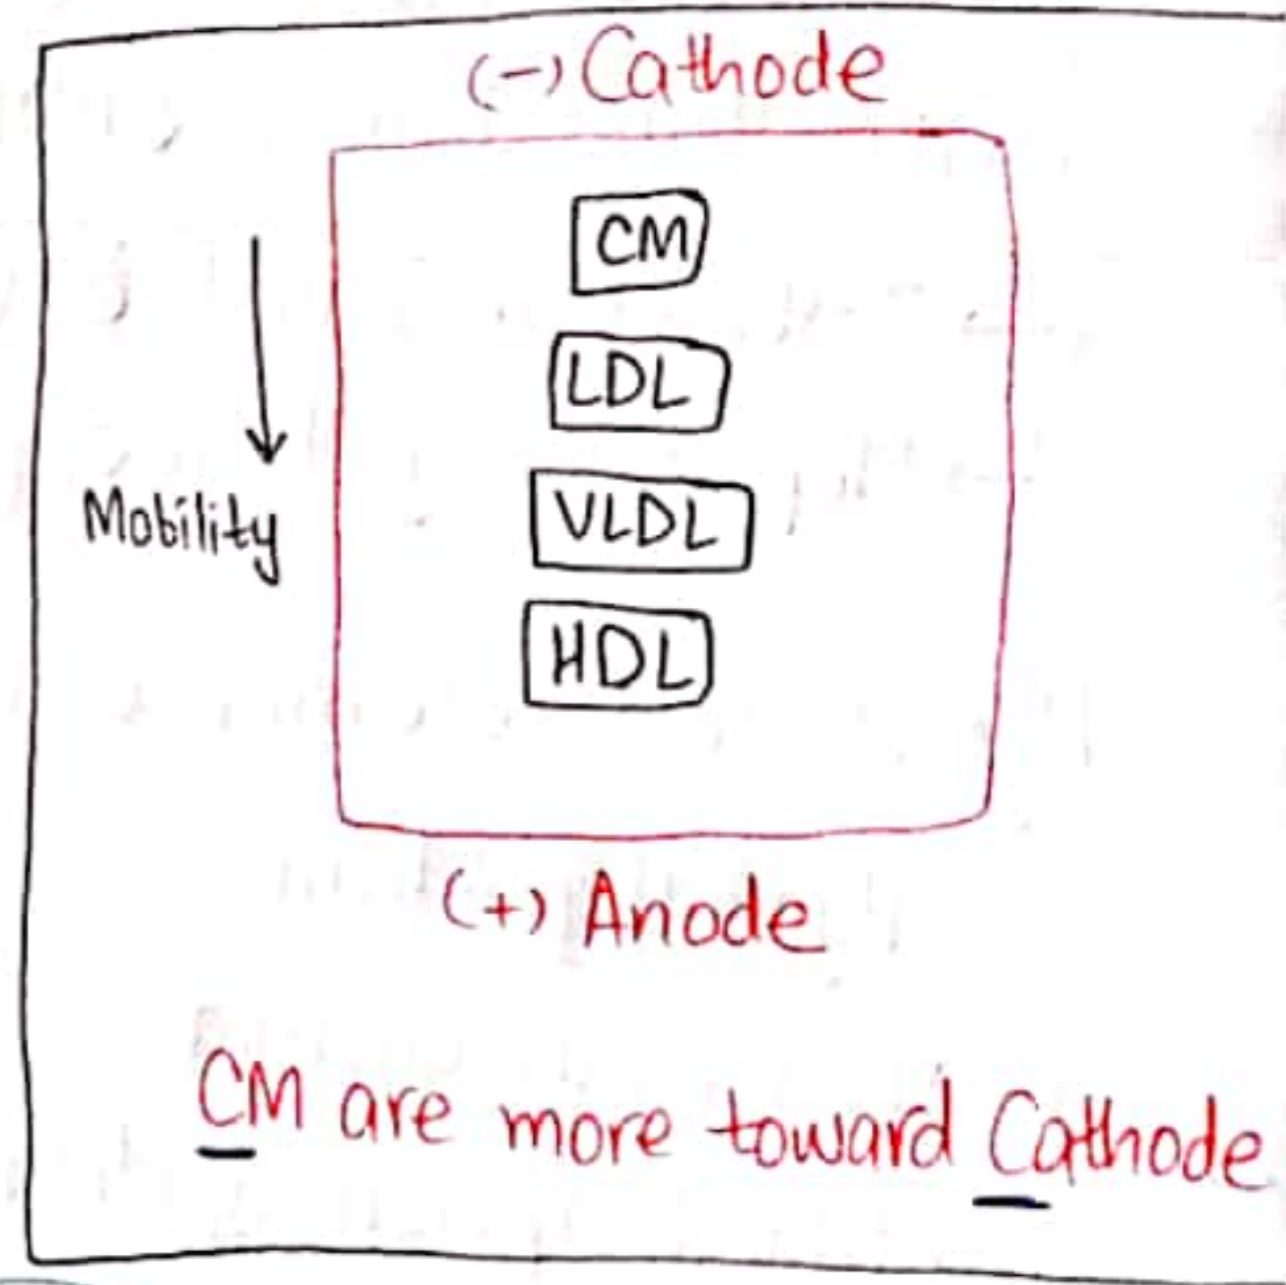 (-) Cathode
CM
LDL
VLDL
Mobility
HDL
(+) Anode
CM are more toward Cathode